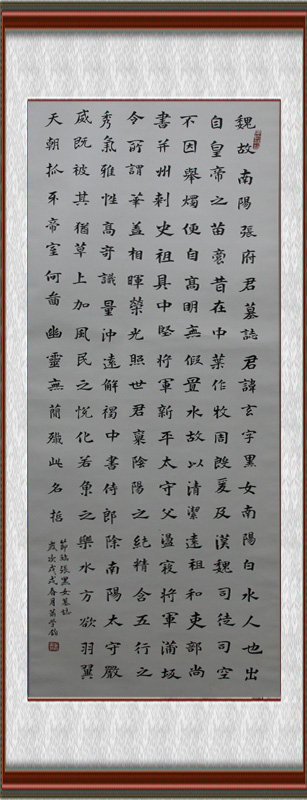 魏故南陽張府君墓誌君諱玄字黑女南陽白水人也出
自皇帝之苗裔昔在中葉作牧周殷爰及漢魏司徒司空
不因舉燭便自高明無假置水故以清潔遠祖和吏部尚
書并州刺史祖具中堅將軍新平太守父盪寇將軍蒲坂
令所謂華蓋相暉榮光照世君稟陰陽之純精含五行之
秀氣雅性高奇識量沖遠解褐中書侍郎除南陽太守嚴
威既被其猶草上加風民之悅化若魚之樂水方欲羽翼
天朝抓牙帝室何啚幽靈無簡殲此名哲
節臨張黑女墓誌
歲次戊戌春月